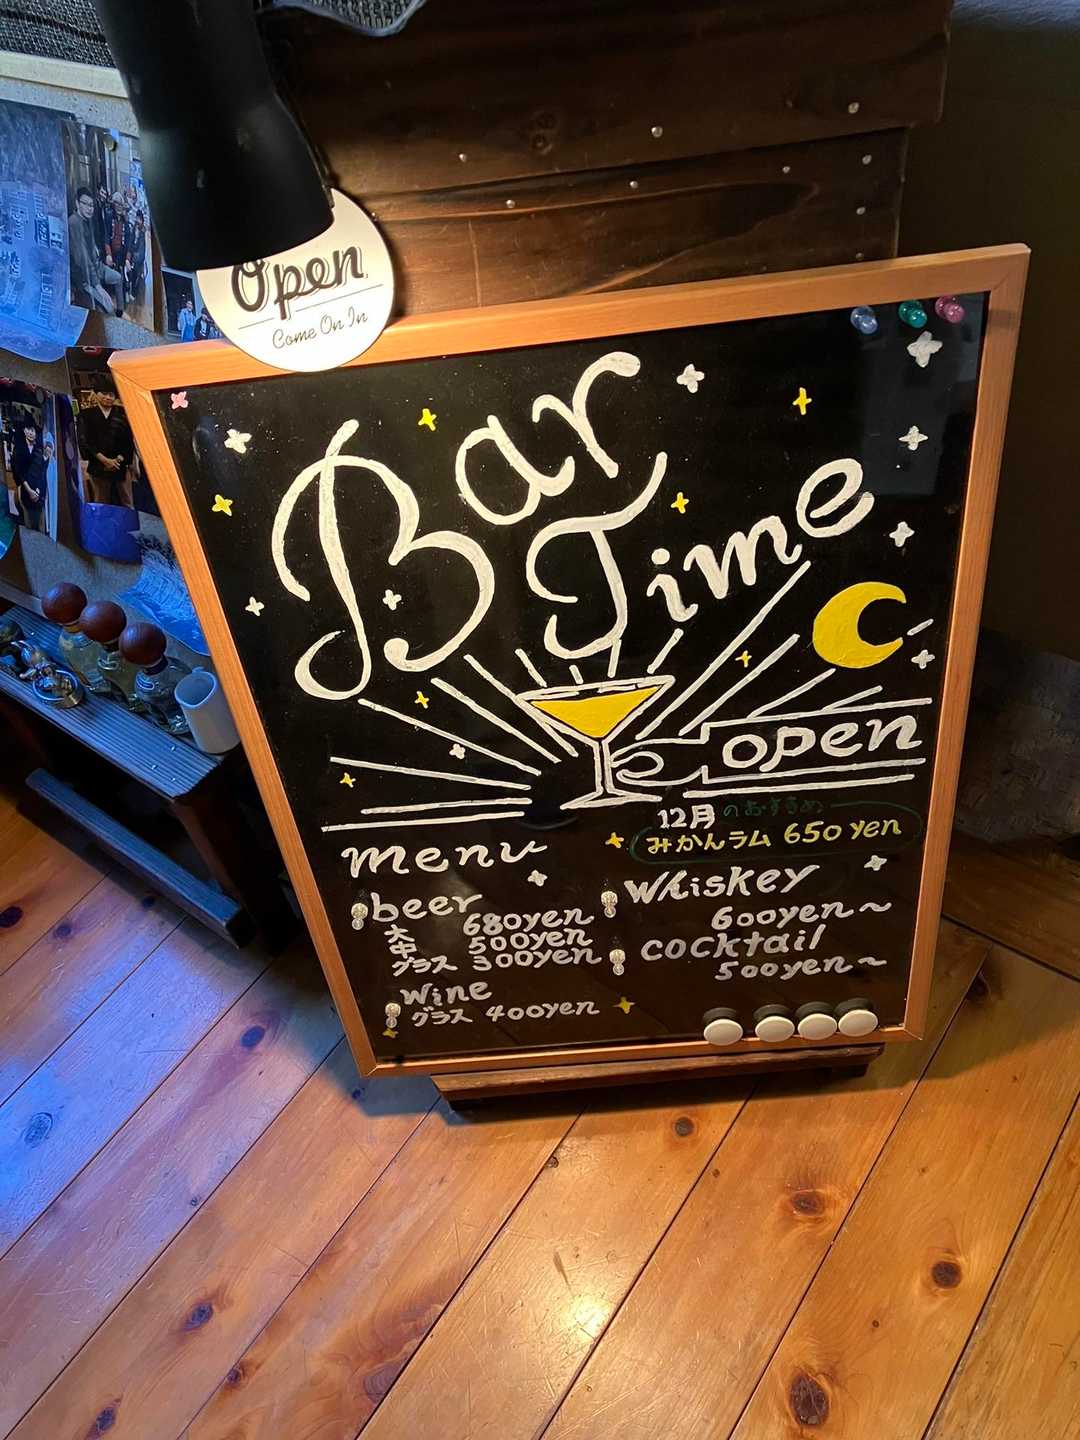 Open
Come On In
Bar
Time
open
12月のおすすめ
みかんラム 650yen
menu
beer
大 680yen
中 500yen
グラス 300yen
wine
グラス 400yen
Whiskey
600yen～
cocktail
500yen～